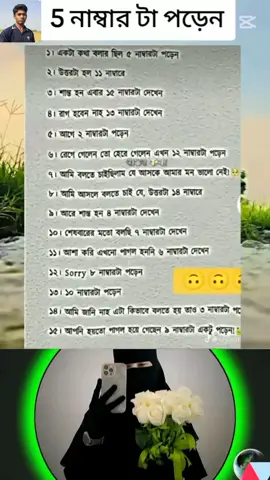 5 নাম্বার টা পড়েন
১। একটা কথা বলার ছিল ৫ নাম্বারটা পড়েন
২। উত্তরটা হল ১১ নাম্বারে
৩। শান্ত হন এবার ১৫ নাম্বারটা দেখেন
৪। রাগ হবেন নাহ ১৩ নাম্বারটা দেখেন
৫। আগে ২ নাম্বারটা পড়েন
৬। রেগে গেলেন তো হেরে গেলেন এখন ১২ নাম্বারটা পড়েন
৭। আমি বলতে চাইছিলাম যে আসকে আমার মন ভালো নেই
৮। আমি আসলে বলতে চাই যে, উত্তরটা ১৪ নাম্বারে
৯। আরে শান্ত হন ৪ নাম্বারটা দেখেন
১০। শেষবারের মতো বলছি ৭ নাম্বারটা দেখেন
১১। আশা করি এখনো পাগল হননি ৬ নাম্বারটা দেখেন
১২। Sorry ৮ নাম্বারটা পড়েন
১৩। ১০ নাম্বারটা পড়েন
১৪। আমি জানি নাহ এটা কিভাবে বলতে হয় তাও ৩ নাম্বারটা
১৫। আপনি হয়তো পাগল হয়ে গেছেন ৯ নাম্বারটা একটু পড়েন!